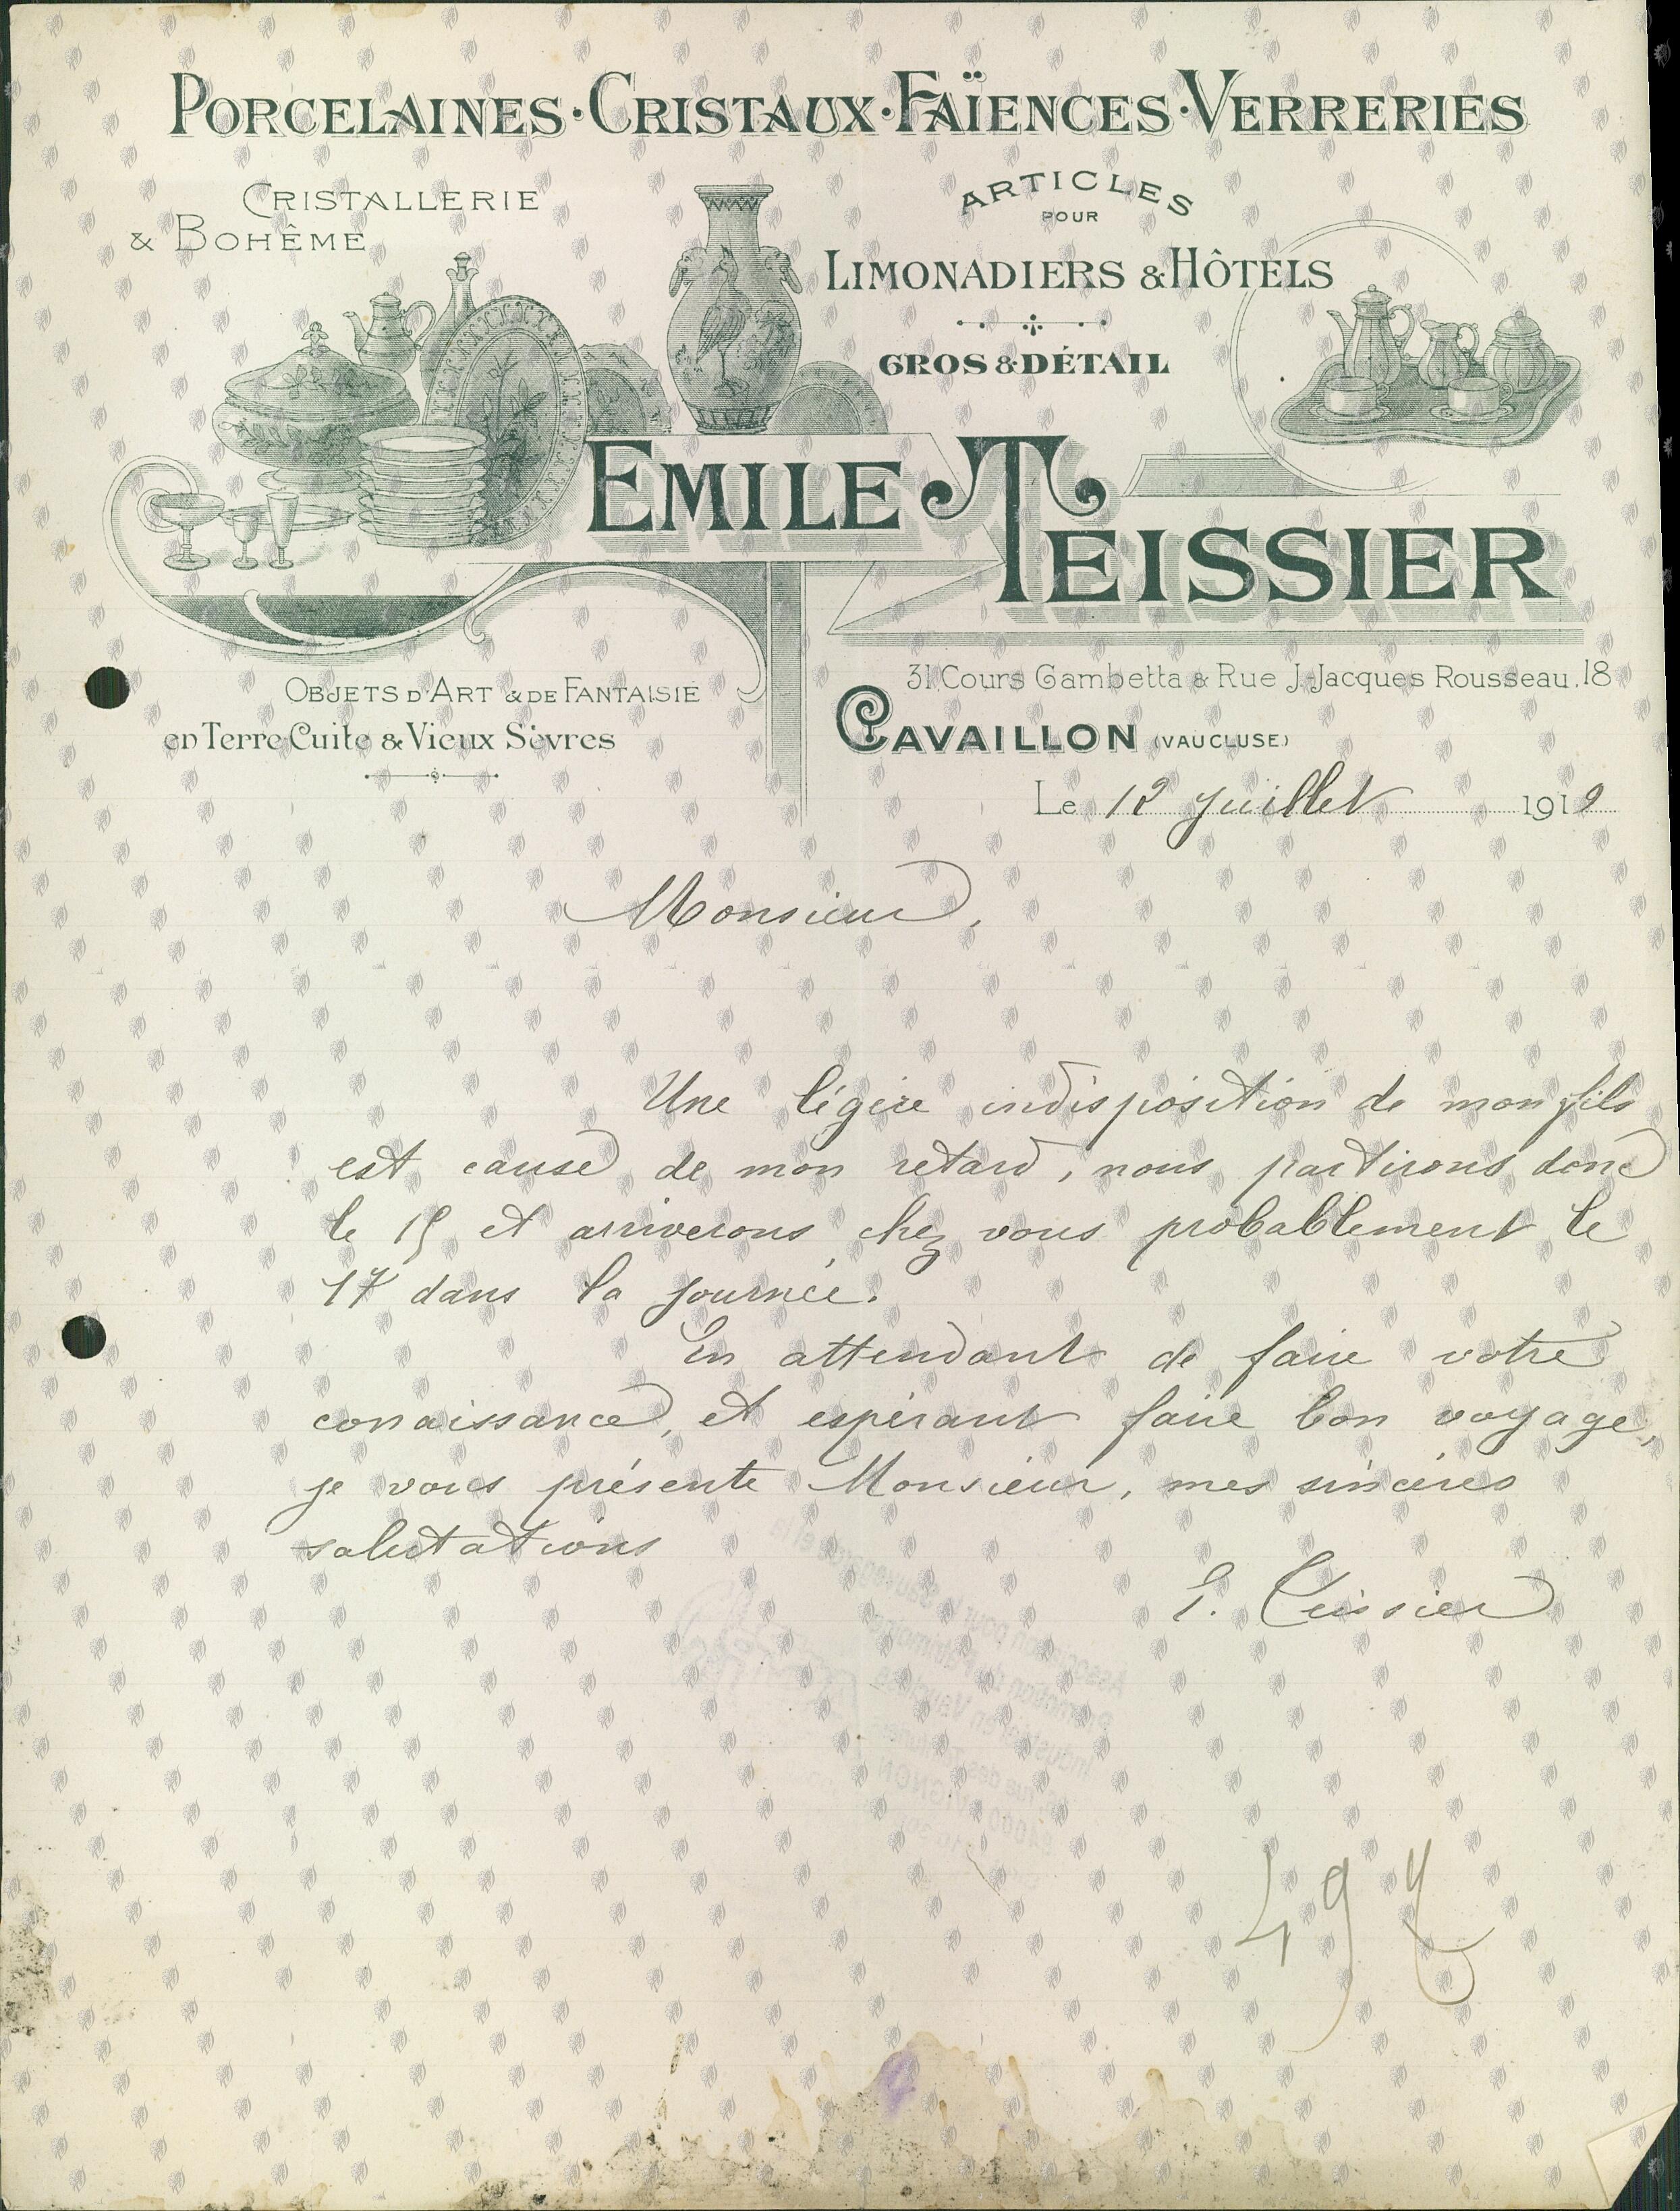 PORCELAINES · CRISTAUX · FAÏENCES · VERRERIES
CRISTALLERIE
& BOHÊME
ARTICLES
POUR
LIMONADIERS & HÔTELS
GROS & DÉTAIL
EMILE TEISSIER
OBJETS D'ART & DE FANTAISIE
en Terre Cuite & Vieux Sèvres
31, Cours Gambetta & Rue J-Jacques Rousseau, 18
CAVAILLON (VAUCLUSE)
Le 12 Juillet 1912
Monsieur,
Une légère indisposition de mon fils
est cause de mon retard, nous partirons donc
le 15 et arriverons chez vous probablement le
17 dans la journée.
En attendant de faire votre
connaissance, et espérant faire bon voyage,
je vous présente Monsieur, mes sincères
salutations
E. Teissier